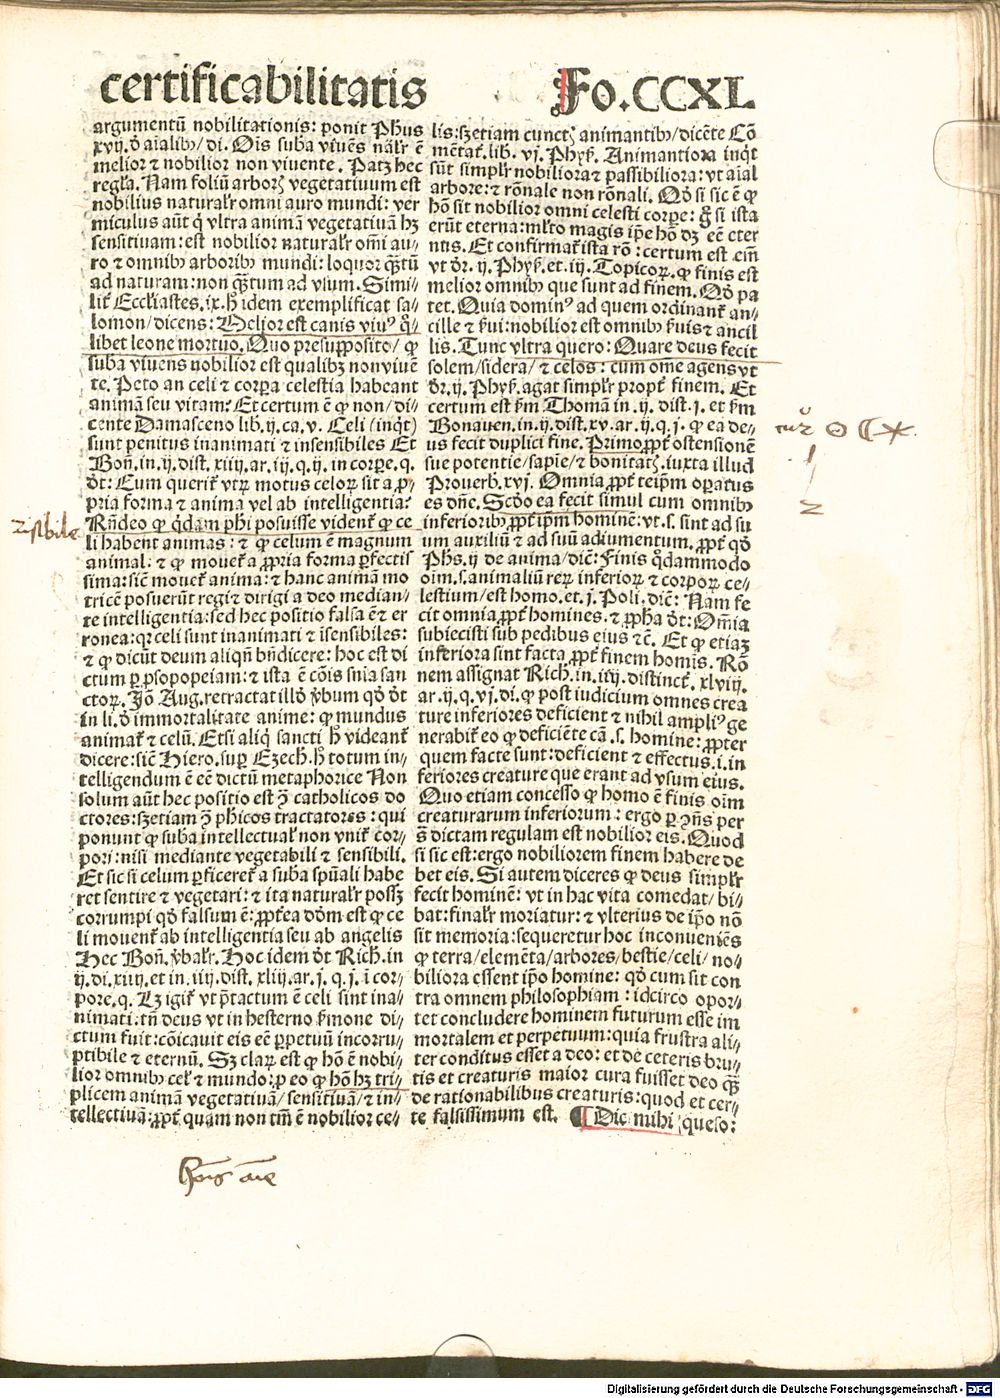 certificabilitatis
Fo.CCXL
argumentũ nobilitationis: ponit Phus
xvij. ð aĩalibꝰ/di. Oĩs suba viuẽs nãlr̃ ẽ
melior ⁊ nobilior non viuente. Patꝫ hec
regl̃a. Nam foliũ arborꝭ vegetatiuum est
nobilius naturalr̃ omni auro mundi: ver
miculus aũt q̇ vltra animã vegetatiuã hꝫ
sensitiuam: est nobilior naturalr̃ om̃i au⸗
ro ⁊ omnibꝰ arboribꝰ mundi: loquor q̃ꝫtũ
ad naturam: non q̃ꝫtum ad vsum. Simi⸗
lit̃ Eccl̃iastes. ix. h̃ idem exemplificat sa⸗
lomon/dicens: Melior est canis viuꝰ q̃⸗
libet leone mortuo. Quo presupposito/ ꝙ
suba viuens nobilior est qualibꝫ non viuẽ
te. Peto an celi ⁊ corpa celestia habeant
animã seu vitam? Et certum ẽ ꝙ non/di⸗
cente Damasceno lib. ij. ca. v. Celi (inq̇t)
sunt penitus inanimati ⁊ insensibiles Et
Bon̄. in. ij. dist. xiiij. ar. iij. q. ij. in corpe. q.
ðt: Cum querit̃ vtꝝ motus celoꝝ sit a ꝓ⸗
pria forma ⁊ anima vel ab intelligentia?
Rñdeo ꝙ q̇dam phi posuisse vident̃ ꝙ ce
li habent animas: ⁊ ꝙ celum ẽ magnum
animal: ⁊ ꝙ mouet̃ a ꝓpria forma ꝑfectis
sima: sicẽ mouet̃ anima: ⁊ hanc animã mo
tricẽ posuerũt regi ⁊ dirigi a deo median⸗
te intelligentia: sed hec positio falsa ẽ ⁊ er
ronea: qꝛ celi sunt inanimati ⁊ ĩsensibiles:
⁊ ꝙ dicũt deum aliqñ bñdicere: hoc est di
ctum ꝑ ꝓsopopeiam: ⁊ ista ẽ cõis snĩa san
ctoꝝ. Jõ Aug. retractat illð ṽbum qð ðt
in li. ð immortalitate anime: ꝙ mundus
animat̃ ⁊ celũ. Etsi aliq̇ sancti h̃ videant̃
dicere: sicẽ Hiero. suꝑ Ezech. h̃ totum in⸗
telligendum ẽ eẽ dictũ metaphorice Non
solum aũt hec positio est ꝯ̃ catholicos do
ctores: sꝫ etiam ꝯ̃ phicos tractatores: qui
ponunt ꝙ suba intellectualr̃ non vnit̃ cor⸗
pori: nisi mediante vegetabili ⁊ sensibili.
Et sic si celum ꝑficeret̃ a suba spũali habe
ret sentire ⁊ vegetari: ⁊ ita naturalr̃ posꝫ
corrumpi qð falsum ẽ: ꝓpt̃ea dõm est ꝙ ce
li mouent̃ ab intelligentia seu ab angelis
Hec Bon̄. ṽbalr̃. Hoc idem ðt Rich. in
ij. di. xiiij. et in. iiij. dist. xliij. ar. j. q. j. ĩ cor⸗
pore. q. Lꝫ igit̃ vt p̃tactum ẽ celi sint ina⸗
nimati: tñ deus vt in hesterno s̃mone di⸗
ctum fuit: cõicauit eis eẽ ꝑpetuũ incorru⸗
ptibile ⁊ eternũ. Sꝫ claꝝ est ꝙ hõ ẽ nobi⸗
lior omnibꝰ cel̃ ⁊ mundo: ꝓ eo ꝙ hõ hꝫ tri⸗
plicem animã vegetatiuã/ sensitiuã/ ⁊ in⸗
tellectiuã: ꝓpt̃ quam non tm̃ ẽ nobilior ce⸗
lis: sꝫ etiam cunctꝭ animantibꝰ/dicẽte Cõ
mẽtat̃. lib. vj. Phys̃. Animantiora inq̇t
sũt simplr̃ nobiliora ⁊ passibiliora: vt aĩal
arbore: ⁊ rõnale non rõnali. Qð si sic ẽ ꝙ
hõ sit nobilior omni celesti corpe: g̊ si ista
erũt eterna: ml̃to magis ip̃e hõ ðꝫ eẽ eter
nus. Et confirmat̃ ista rõ: certum est em̃
vt ðr. ij. Phys̃. et. iij. Topicoꝝ. ꝙ finis est
melior omnibꝰ que sunt ad finem. Qð pa
tet. Quia dominꝰ ad quem ordinant̃ an⸗
cille ⁊ s̃ui: nobilior est omnibꝰ s̃uis ⁊ ancil
lis. Tunc vltra quero: Quare deus fecit
solem/sidera/ ⁊ celos: cum om̃e agens vt
ðr. ij. Phys̃. agat simplr̃ propt̃ finem. Et
certum est s̃m Thomã in. ij. dist. j. et s̃m
Bonauen. in. ij. dist. xv. ar. ij. q. j. ꝙ ea de⸗
us fecit duplici fine. Primo ꝓpt̃ ostensionẽ
sue potentie/ sapĩe/ ⁊ bonitatꝭ. iuxta illud
Prouerb. xvj. Omnia ꝓpt̃ teip̃m operatus
es dñe. Scðo ea fecit simul cum omnibꝰ
inferioribꝰ ꝓpt̃ ip̃m hominẽ: vt. s. sint ad su
um auxiliũ ⁊ ad suũ adiumentum. ꝓpt̃ qð
Phs. ij de anima/ dic̃: Finis q̇dammodo
oim̃. s. animaliũ reꝝ inferioꝝ ⁊ corpoꝝ ce⸗
lestium/ est homo. et. j. Poli. dic̃: Nam fe
cit omnia ꝓpt̃ homines. ⁊ ꝓph̃a ðt: Om̃ia
subiecisti sub pedibus eius ⁊c̃. Et ꝙ etiaꝫ
inferiora sint facta ꝓpt̃ finem homis. Rõ
nem assignat Rich̃. in. iiij. distinct̃. xlviij.
ar. ij. q. vj. di. ꝙ post iudicium omnes crea
ture inferiores deficient ⁊ nihil ampliꝰ ge
nerabit̃ eo ꝙ deficiẽte cã. s. homine: ꝓpter
quem facte sunt: deficient ⁊ effectus. i. in
feriores creature que erant ad vsum eius.
Quo etiam concesso ꝙ homo ẽ finis oim̃
creaturarum inferiorum: ergo ꝑ ꝯñs per
s̃ dictam regulam est nobilior eis. Quod
si sic est: ergo nobiliorem finem habere de
bet eis. Si autem diceres ꝙ deus simplr̃
fecit hominẽ: vt in hac vita comedat/ bi⸗
bat: finalr̃ moriatur: ⁊ vlterius de ip̃o nõ
sit memoria: sequeretur hoc inconueniẽs
ꝙ terra/ elemẽta/ arbores/ bestie/ celi/ no⸗
biliora essent ip̃o homine: qð cum sit con
tra omnem philosophiam: idcirco opor⸗
tet concludere hominem futurum esse im
mortalem et perpetuum: quia frustra ali⸗
ter conditus esset a deo: et de ceteris bru⸗
tis et creaturis maior cura fuisset deo q̃ꝫ
de rationabilibus creaturis: quod et cer⸗
te falsissimum est. ¶ Dic mihi queso:
Digitalisierung gefördert durch die Deutsche Forschungsgemeinschaft - DFG